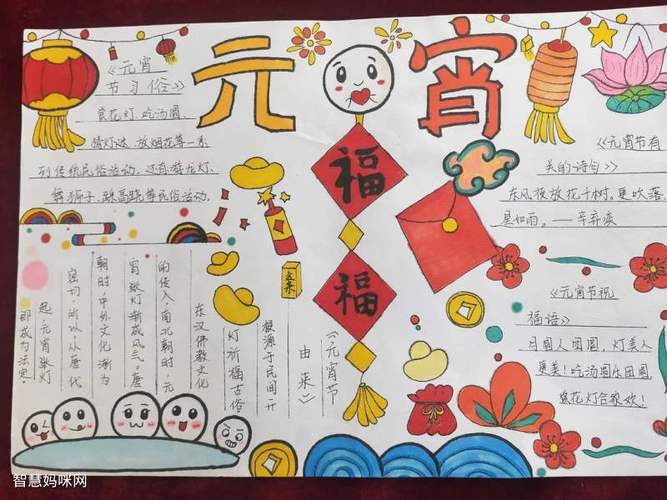 元
宵
《元宵
节习俗》
赏花灯、吃汤圆、
猜灯谜、放烟花等一系
列传统民俗活动。还有游龙灯、
舞狮子、踩高跷等民俗活动。
福
福
《元宵节有
关的诗句》
东风夜放花千树。更吹落、
星如雨。——辛弃疾
《元宵节祝
福语》
月圆人团圆，灯美人
更美！吃汤圆乐团圆
赏花灯合家欢！
《元宵节
由来》
根源于民间开
灯祈福古俗
在汉佛教文化
的传入，南北朝时，元
宵张灯渐成风气。唐
朝时，中外文化渐为
密切，所以，从唐代
起，元宵张灯
即成为法定。
智慧妈咪网